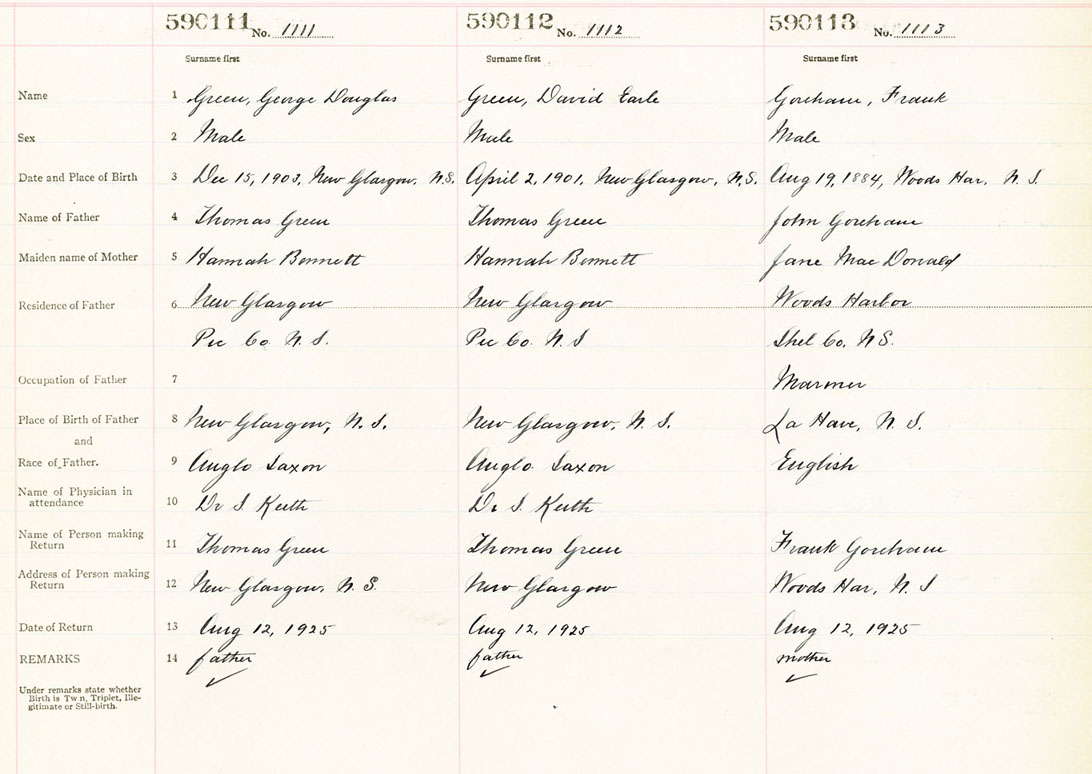 590111 No. 1111 590112 No. 1112 590113 No. 1113
Surname first Surname first Surname first
Name 1 Green, George Douglas Green, David Earle Goreham, Frank
Sex 2 Male Male Male
Date and Place of Birth 3 Dec 15, 1903, New Glasgow, N.S. April 2, 1901, New Glasgow, N.S. Aug 19, 1884, Woods Har, N. S.
Name of Father 4 Thomas Green Thomas Green John Goreham
Maiden name of Mother 5 Hannah Bonnett Hannah Bonnett Jane Mac Donald
Residence of Father 6 New Glasgow New Glasgow Woods Harbor
Pic Co. N. S. Pic Co. N. S Shel Co, N S.
Occupation of Father 7 Mariner
Place of Birth of Father 8 New Glasgow, N. S. New Glasgow, N. S. La Have, N. S.
and
Race of Father. 9 Anglo Saxon Anglo Saxon English
Name of Physician in
attendance 10 Dr S Keith Dr S. Keith
Name of Person making
Return 11 Thomas Green Thomas Green Frank Goreham
Address of Person making
Return 12 New Glasgow, N. S. New Glasgow Woods Har, N. S
Date of Return 13 Aug 12, 1925 Aug 12, 1925 Aug 12, 1925
REMARKS 14 father father mother
Under remarks state whether
Birth is Tw n, Triplet, Ille-
gitimate or Still-birth.